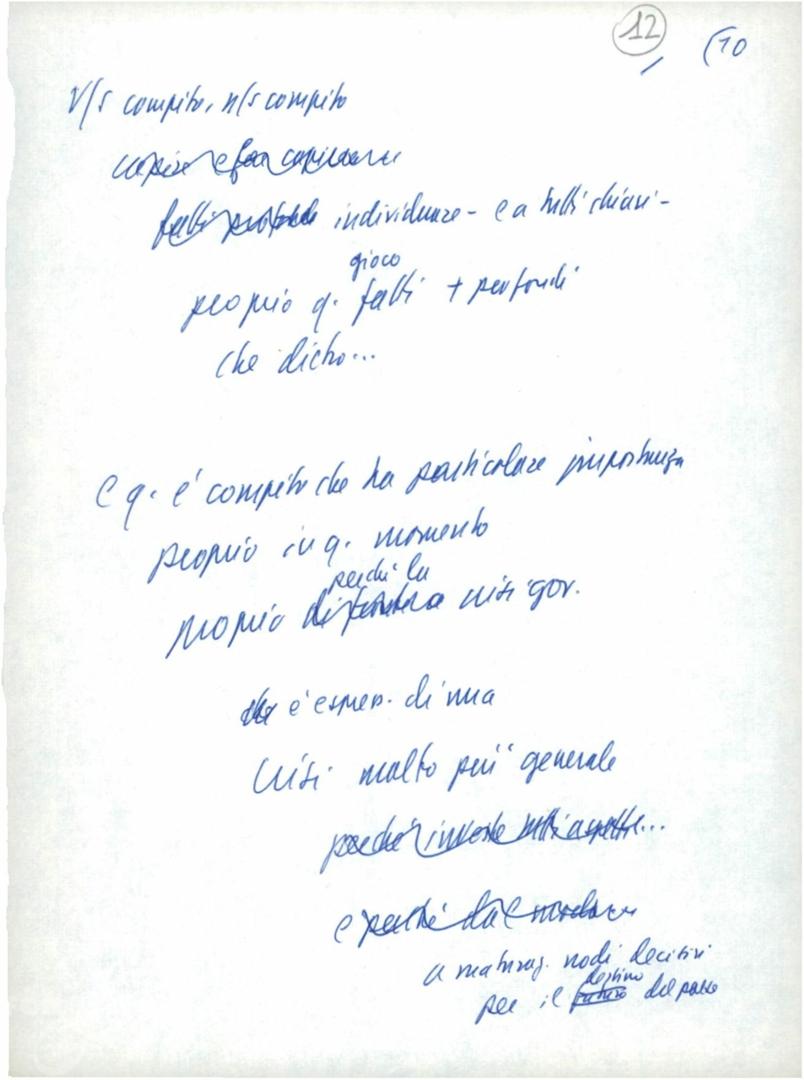 12 (10
V/s compito, n/s compito
capire e far capire
fatti individuare - e a tutti chiari -
gioco
proprio q. fatti + profondi
che dietro...
e q. è compito che ha particolare importanza
proprio in q. momento
perché la
proprio crisi gov.
che è espres. di una
crisi molto più generale
perché investe tutti aspetti...
e perché
a maturaz. nodi decisivi
destino
per il futuro del paese